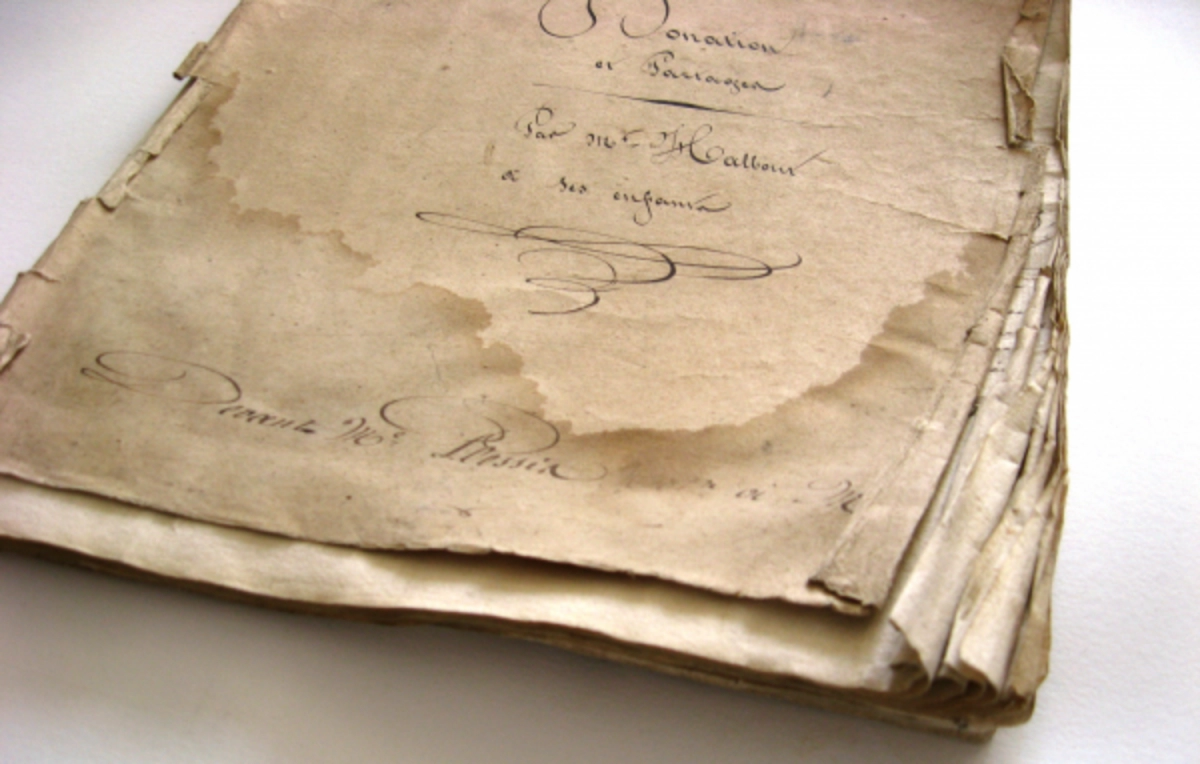 Donation
et Partages
Par Mr. Malbout
à ses enfants
Devant Me